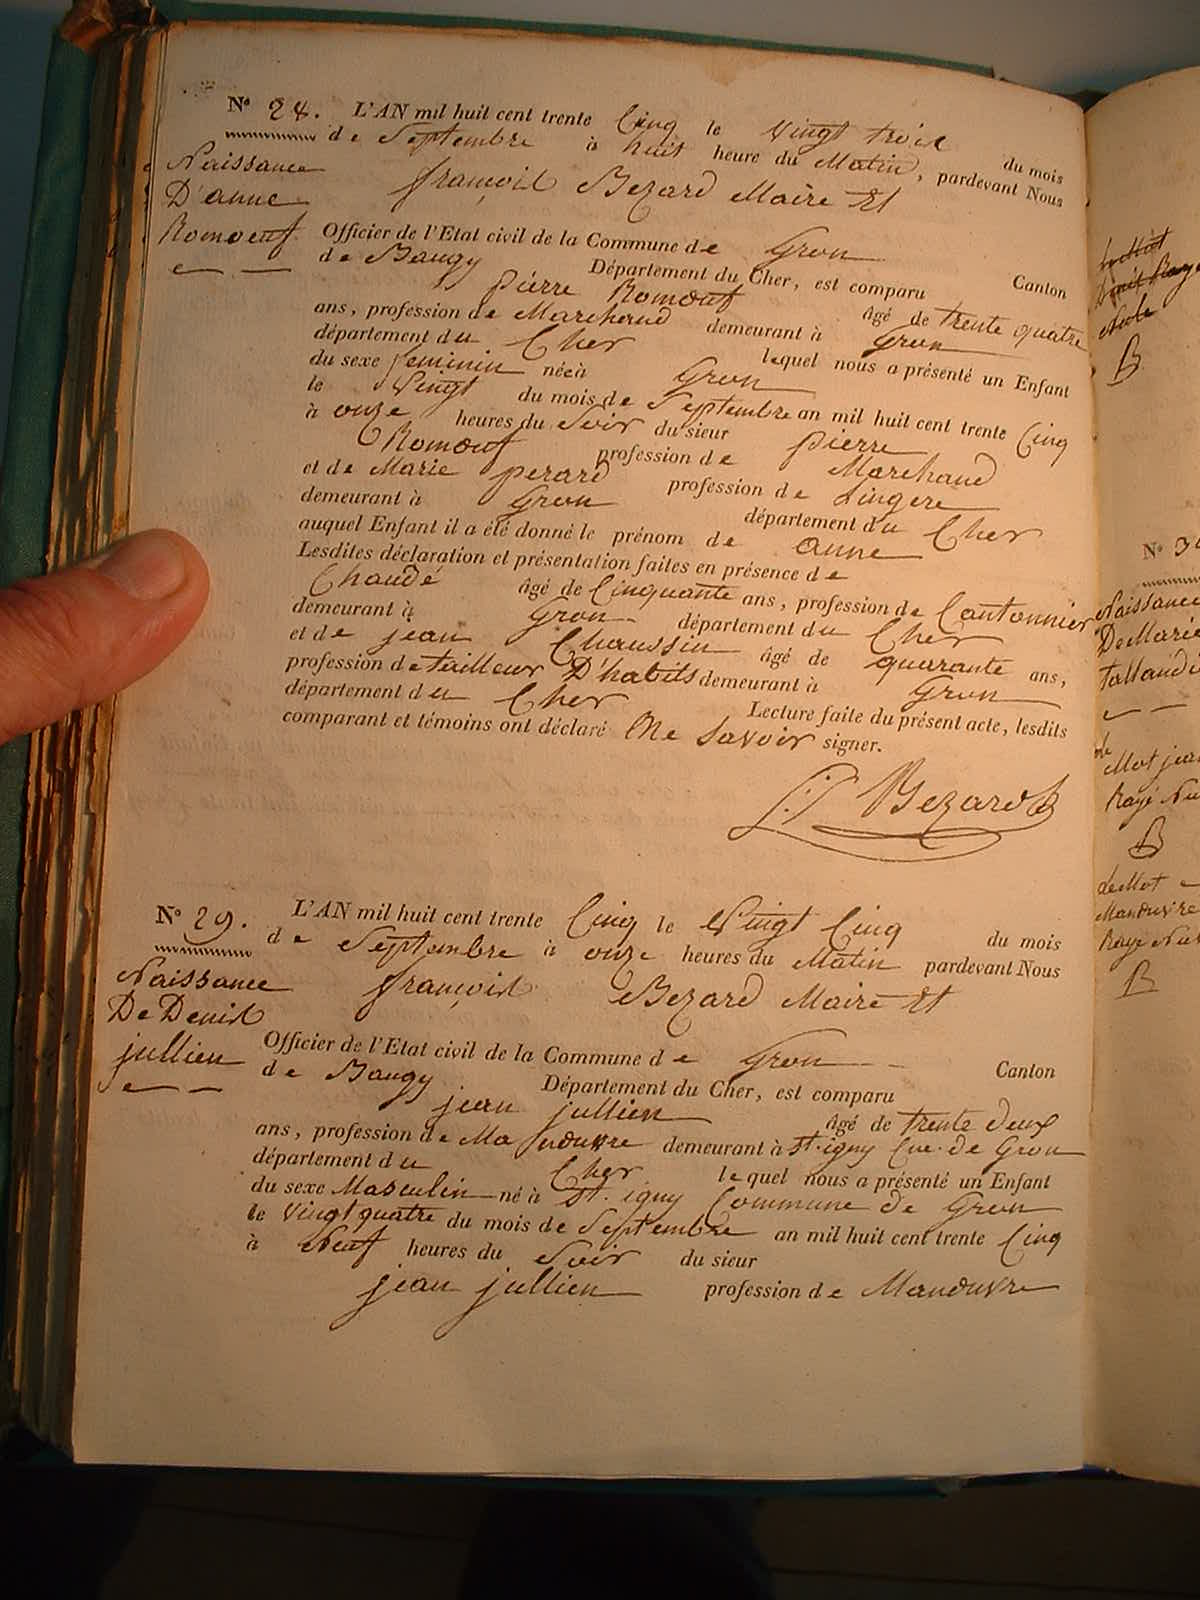 N° 28. L'AN mil huit cent trente Cinq le Vingt trois du mois
de Septembre à huit heure du Matin, pardevant Nous
Naissance
D'anne
Romoeuf
françois Bezard Maire Et
Officier de l'Etat civil de la Commune de Gron Canton
de Baugy Département du Cher, est comparu
pierre Romoeuf âgé de trente quatre
ans, profession de Marchand demeurant à Gron
département du Cher lequel nous a présenté un Enfant
du sexe feminin née à Gron
le Vingt du mois de Septembre an mil huit cent trente Cinq
à onze heures du Soir du sieur pierre
Romoeuf profession de Marchand
et de Marie perard profession de Lingere
demeurant à Gron département du Cher
auquel Enfant il a été donné le prénom de anne
Lesdites déclaration et présentation faites en présence de
Chaude âgé de Cinquante ans, profession de Cantonnier
demeurant à Gron département du Cher
et de jean Chaussin âgé de quarante ans,
profession de tailleur D'habits demeurant à Gron
département du Cher Lecture faite du présent acte, lesdits
comparant et témoins ont déclaré Ne Savoir signer.
Bezard
N° 29. L'AN mil huit cent trente Cinq le Vingt Cinq du mois
de Septembre à onze heures du Matin pardevant Nous
Naissance
De Denis
jullien
françois Bezard Maire Et
Officier de l'Etat civil de la Commune de Gron Canton
de Baugy Département du Cher, est comparu
jean jullien âgé de trente deux
ans, profession de Manœuvre demeurant à St. igny Cne. de Gron
département du Cher lequel nous a présenté un Enfant
du sexe Masculin né à St. igny Commune de Gron
le Vingt quatre du mois de Septembre an mil huit cent trente Cinq
à Neuf heures du Soir du sieur
jean jullien profession de Manœuvre
B
N° 3
Naissance
De Marie
Mot jean
B
Le Mot
Manœuvre
B